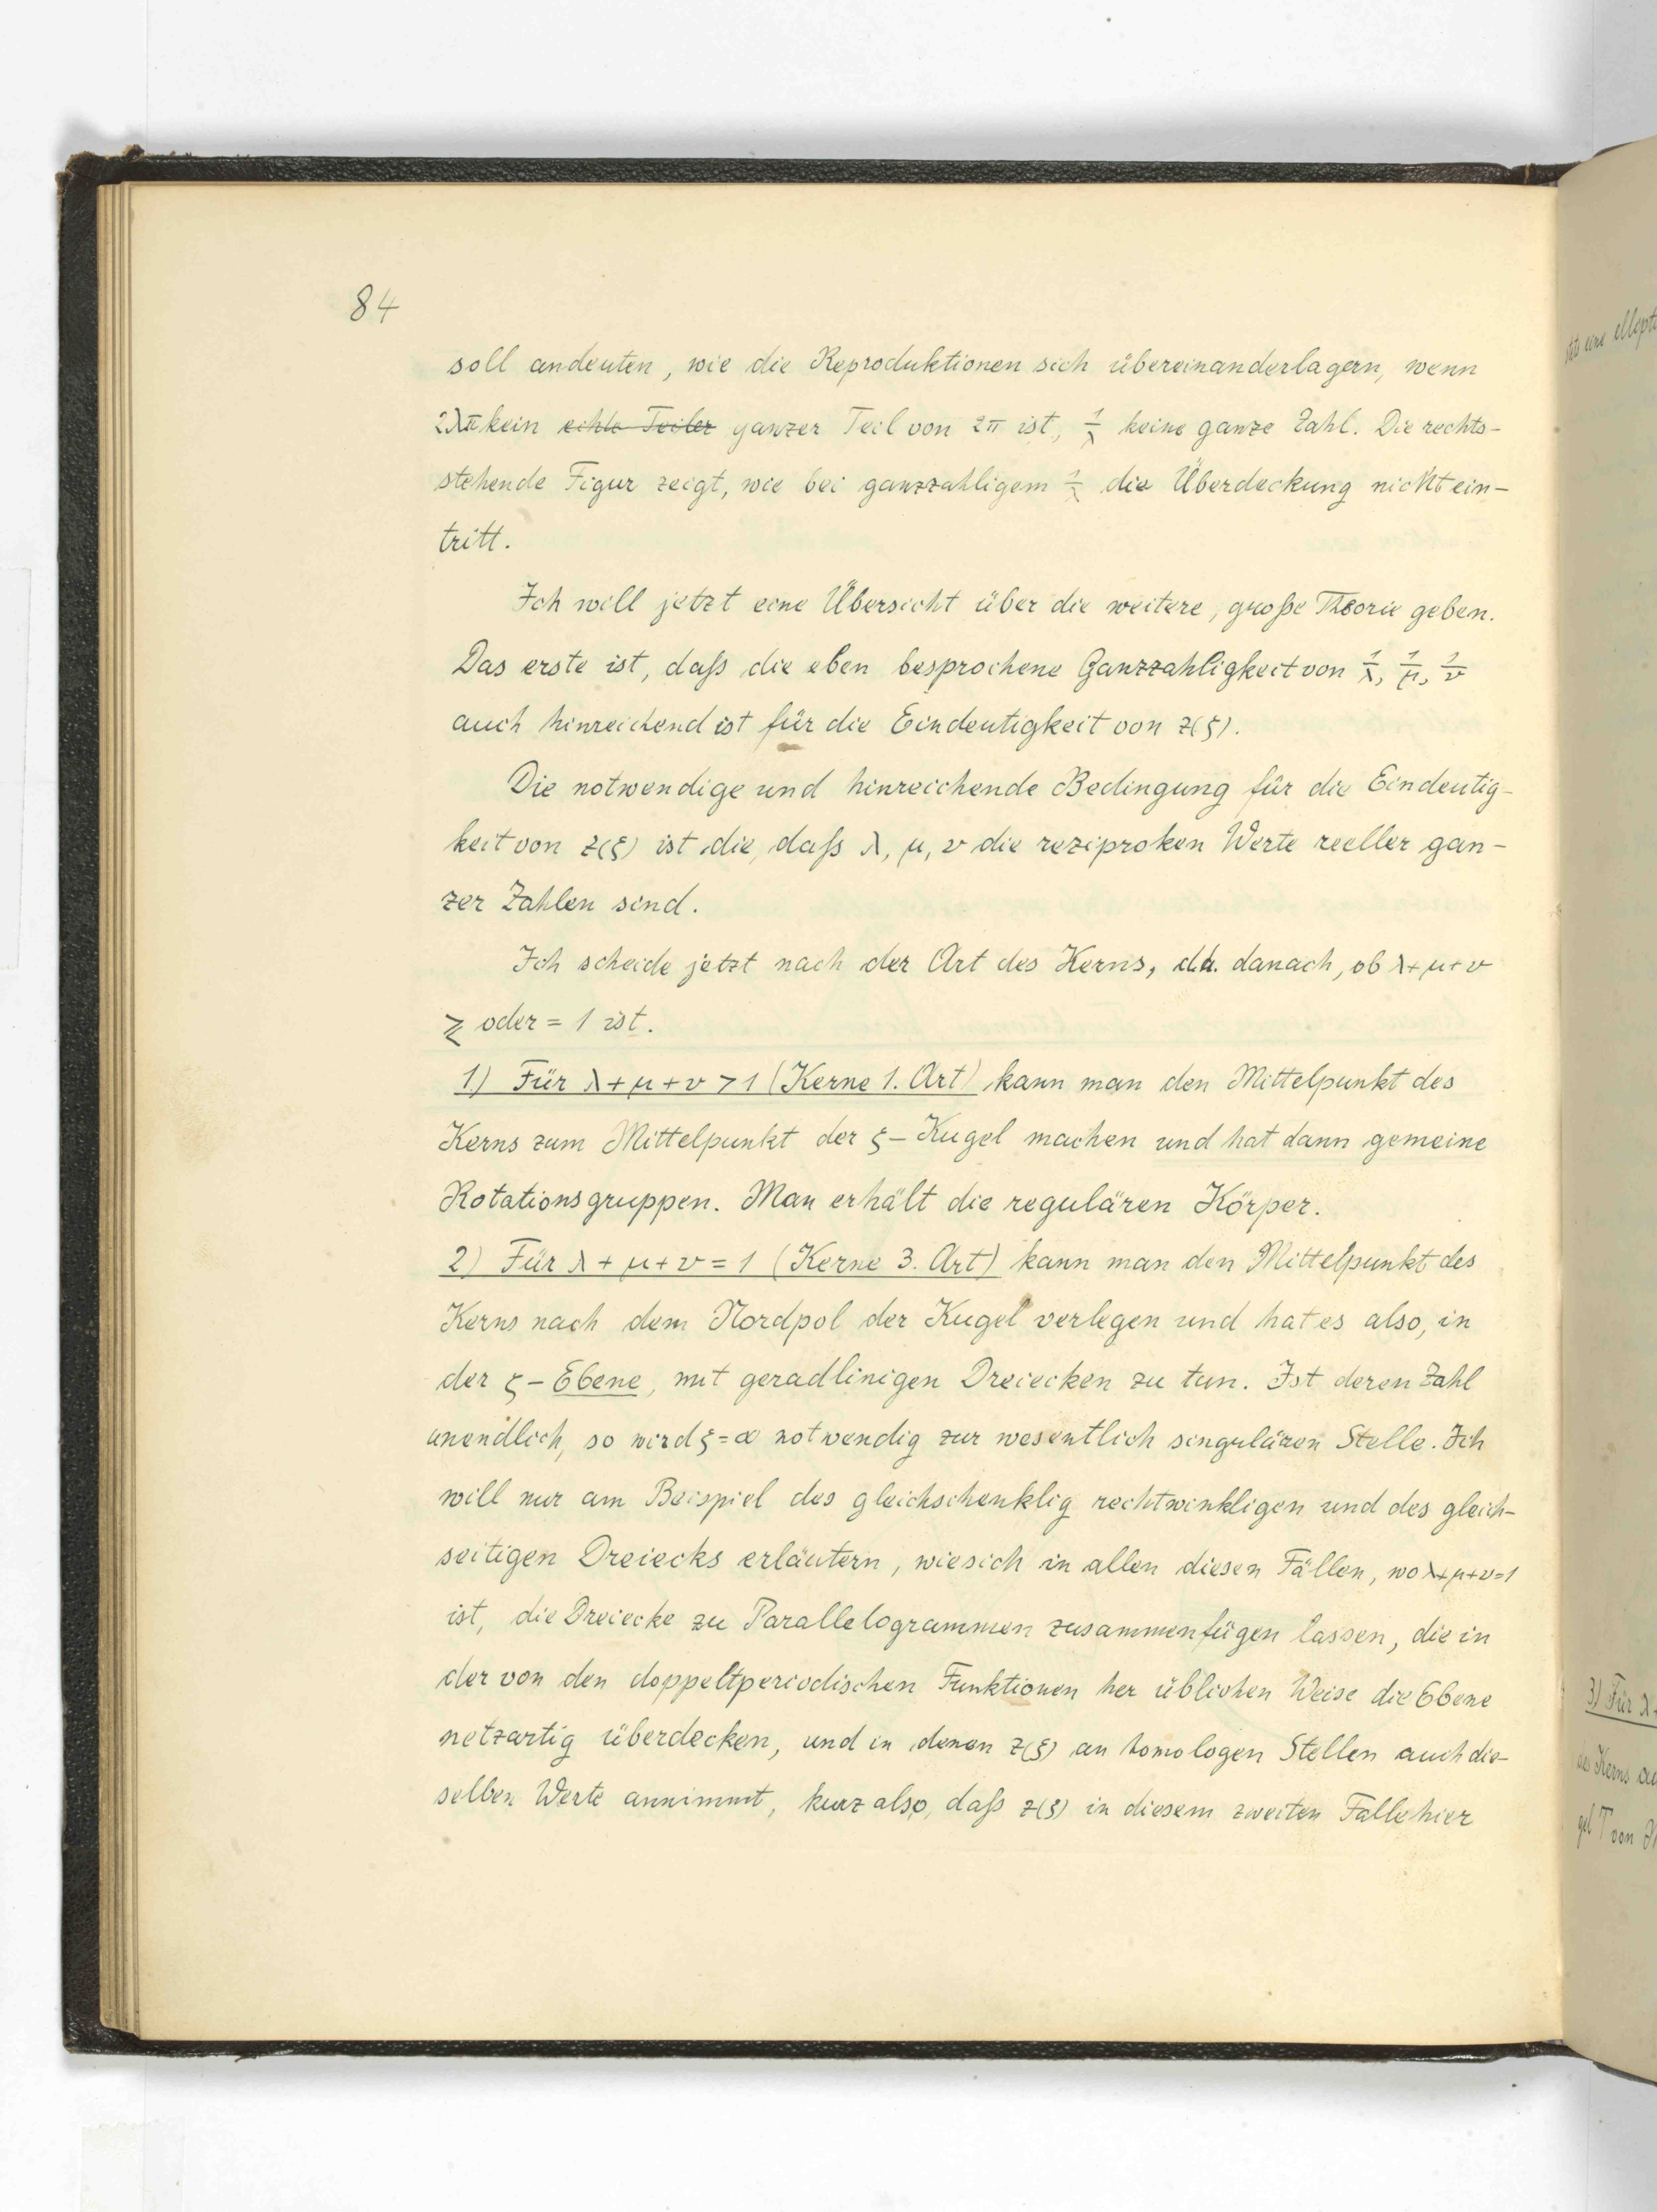 84
soll andeuten, wie die Reproduktionen sich übereinanderlagern, wenn
2λπ kein echte Teiler ganzer Teil von 2π ist, 1/λ keine ganze Zahl. Die rechts-
stehende Figur zeigt, wie bei ganzzahligem 1/λ die Überdeckung nicht ein-
tritt.
Ich will jetzt eine Übersicht über die weitere, große Theorie geben.
Das erste ist, daß die eben besprochene Ganzzahligkeit von 1/λ, 1/μ, 1/ν
auch hinreichend ist für die Eindeutigkeit von z(ζ).
Die notwendige und hinreichende Bedingung für die Eindeutig-
keit von z(ζ) ist die, daß λ, μ, ν die reziproken Werte reeller gan-
zer Zahlen sind.
Ich scheide jetzt nach der Art des Kerns, d.h. danach, ob λ+μ+ν
≷ oder = 1 ist.
1) Für λ+μ+ν > 1 (Kerne 1. Art) kann man den Mittelpunkt des
Kerns zum Mittelpunkt der ζ-Kugel machen und hat dann gemeine
Rotationsgruppen. Man erhält die regulären Körper.
2) Für λ+μ+ν = 1 (Kerne 3. Art) kann man den Mittelpunkt des
Kerns nach dem Nordpol der Kugel verlegen und hat es also, in
der ζ-Ebene, mit geradlinigen Dreiecken zu tun. Ist deren Zahl
unendlich, so wird ζ=∞ notwendig zur wesentlich singulären Stelle. Ich
will nur am Beispiel des gleichschenklig rechtwinkligen und des gleich-
seitigen Dreiecks erläutern, wie sich in allen diesen Fällen, wo λ+μ+ν=1
ist, die Dreiecke zu Parallelogrammen zusammenfügen lassen, die in
der von den doppeltperiodischen Funktionen her üblichen Weise die Ebene
netzartig überdecken, und in denen z(ζ) an homologen Stellen auch die-
selben Werte annimmt, kurz also, daß z(ζ) in diesem zweiten Falle hier
3) Für λ+
des Kerns
von